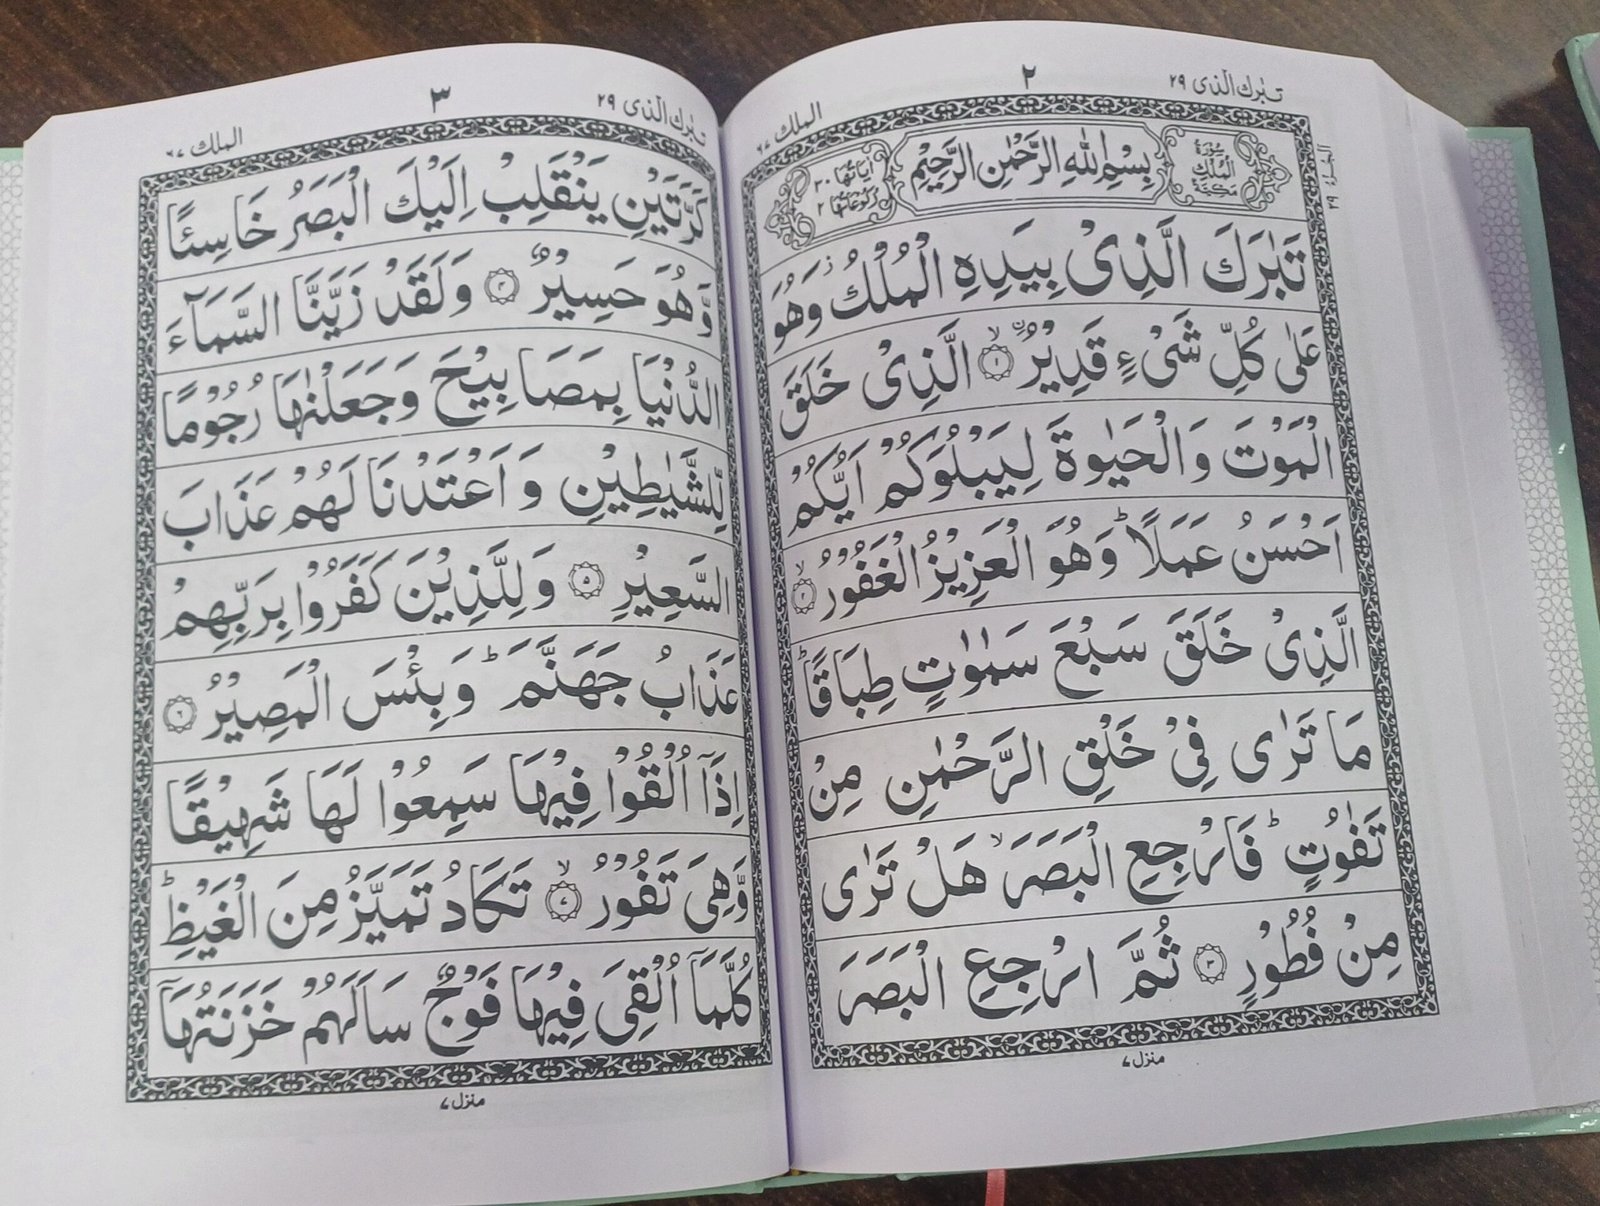 تبٰرك الذی ٢٩
٢
الملك ٦٧
سُوْرَةُ الْمُلْكِ مَكِّيَّةٌ
بِسْمِ اللهِ الرَّحْمٰنِ الرَّحِيْمِ
اٰيَاتُهَا ٣٠
رُكُوْعَاتُهَا ٢
تَبٰرَكَ الَّذِیْ بِيَدِهِ الْمُلْكُ ز وَهُوَ
عَلٰى كُلِّ شَیْءٍ قَدِيْرُ ۙ ﴿١﴾ الَّذِیْ خَلَقَ
الْمَوْتَ وَالْحَيٰوةَ لِيَبْلُوَكُمْ اَيُّكُمْ
اَحْسَنُ عَمَلًا ؕ وَهُوَ الْعَزِيْزُ الْغَفُوْرُ ۙ ﴿٢﴾
الَّذِیْ خَلَقَ سَبْعَ سَمٰوٰتٍ طِبَاقًا ؕ
مَا تَرٰى فِیْ خَلْقِ الرَّحْمٰنِ مِنْ
تَفٰوُتٍ ؕ فَارْجِعِ الْبَصَرَ ۙ هَلْ تَرٰى
مِنْ فُطُوْرٍ ﴿٣﴾ ثُمَّ ارْجِعِ الْبَصَرَ
منزل ٧
تبٰرك الذی ٢٩
٣
الملك ٦٧
كَرَّتَيْنِ يَنْقَلِبْ اِلَيْكَ الْبَصَرُ خَاسِئًا
وَّهُوَ حَسِيْرٌ ﴿٤﴾ وَلَقَدْ زَيَّنَّا السَّمَآءَ
الدُّنْيَا بِمَصَابِيْحَ وَجَعَلْنٰهَا رُجُوْمًا
لِّلشَّيٰطِيْنِ وَاَعْتَدْنَا لَهُمْ عَذَابَ
السَّعِيْرِ ﴿٥﴾ وَلِلَّذِيْنَ كَفَرُوْا بِرَبِّهِمْ
عَذَابُ جَهَنَّمَ ؕ وَبِئْسَ الْمَصِيْرُ ﴿٦﴾
اِذَآ اُلْقُوْا فِيْهَا سَمِعُوْا لَهَا شَهِيْقًا
وَّهِیَ تَفُوْرُ ۙ ﴿٧﴾ تَكَادُ تَمَيَّزُ مِنَ الْغَيْظِ ؕ
كُلَّمَآ اُلْقِیَ فِيْهَا فَوْجٌ سَاَلَهُمْ خَزَنَتُهَآ
منزل ٧